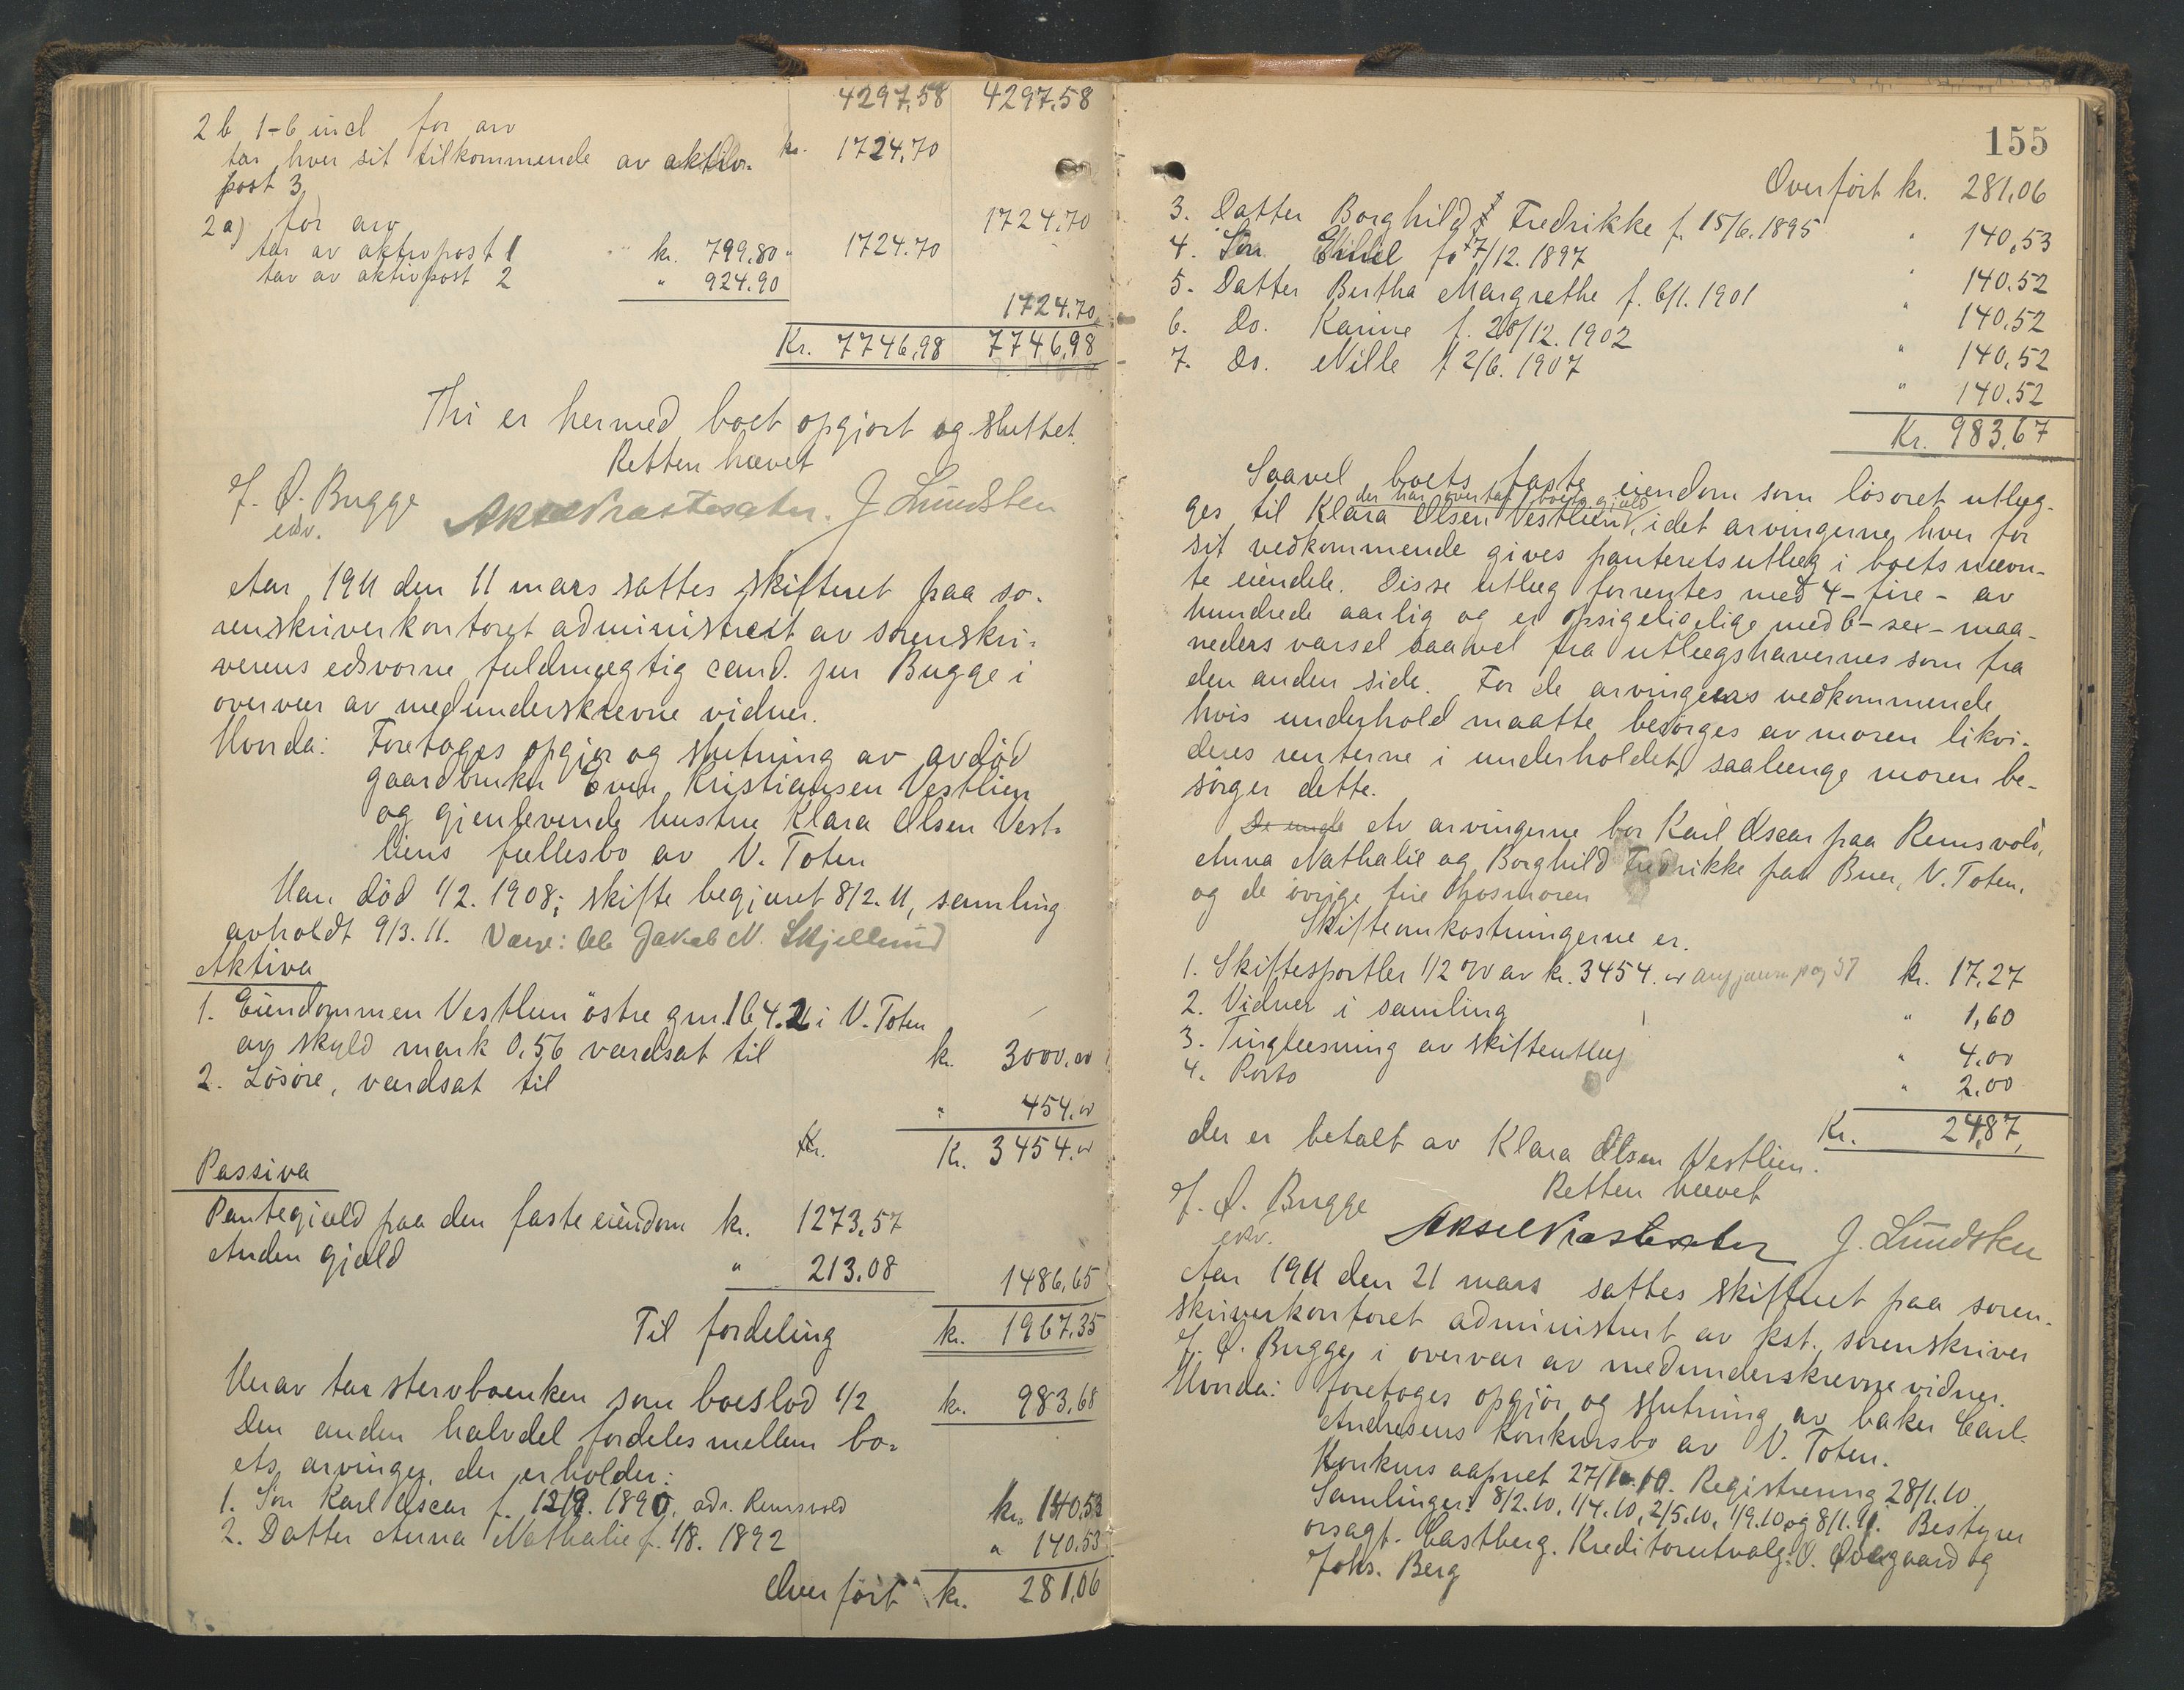 4297.58 4297.58
2 b 1-6 incl for arv
tar hver sit tilkommende av aktiv- kr. 1724.70
post 3
1724.70
2 a) for arv
tar av aktivpost 1 " kr. 799.80 " 1724.70
tar av aktivpost 2 " 924.90
1724.70
Kr. 7746.98 7746.98
Thi er hermed boet opgjort og sluttet.
Retten hævet
J. O. Bugge J Lundsten
edv.
Aar 1911 den 11 mars sattes skifteret paa so-
renskriverkontoret administrert av sorenskri-
verens edsvorne fuldmægtig cand. jur Bugge i
overvær av medunderskrevne vidner.
Hvorda: Foretoges opgjør og slutning av avdöd
gaardbruker Even Kristiansen Vestlien
og gjenlevende hustru Klara Olsen Vest-
liens fællesbo av V. Toten
Han död 1/2. 1908; skifte begjæret 8/2. 11, samling
avholdt 9/3. 11. Værge: Jakob N. Skjellerud
Aktiva
1. Eiendommen Vestlien östre gnr. 164.2 i V. Toten
av skyld mark 0.56 værdsat til kr. 3000.00
2. Lösöre, værdsat til
" 454.00
Kr. Kr. 3454.00
Passiva
Pantegjæld paa den faste eiendom kr. 1273.57
Anden gjæld " 213.08 1486.65
Til fordeling kr. 1967.35
Herav tar stervboenken som boeslod 1/2 kr. 983.68
Den anden halvdel fordeles mellem bo-
ets arvinger, der erholder:
1. Sön Karl Oscar f. 12/9. 1890, adr. Reinsvold kr. 140.53
2. Datter Anna Nathalie f. 1/8. 1892 " 140.53
Overfört kr. 281.06
155
Overfört kr. 281.06
3. Datter Borghild Fredrikke f. 15/6. 1895 " 140,53
4. Sön Emil fö 7/12. 1897 " 140.52
5. Datter Bertha Margrethe f. 6/1. 1901 " 140.52
6. Do. Karine f. 20/12. 1902 " 140.52
7. Do. Nille f 2/6. 1907 " 140.52
Kr. 983.67
Saavel boets faste eiendom som lösöret utlæg-
der har overtat boets gjæld
ges til Klara Olsen Vestlien, idet arvingerne hver for
sit vedkommende gives panteretsutlæg i boets nævn-
te eiendele. Disse utlæg forrentes med 4 - fire - av
hundrede aarlig og er opsigeligelige med 6 - sex - maa-
neders varsel saavel fra utlægshavernes som fra
den anden side. For de arvingers vedkommende
hvis underhold maatte besörges av moren likvi-
deres renterne i underholdet, saalænge moren be-
sörger dette.
Av arvingerne bor Karl Oscar paa Reinsvold,
Anna Nathalie og Borghild Fredrikke paa Buer, V. Toten,
og de övrige fire hos moren
Skifteomkostningerne er.
1. Skiftesportler 1/2 % av kr. 3454.00 kr. 17.27
2. Vidner i samling " 1,60
3. Tinglæsning av skifteutlæg " 4.00
4. Porto " 2.00
Kr. 24,87,
der er betalt av Klara Olsen Vestlien.
Retten hævet
J. O. Bugge J. Lundsten
edv.
Aar 1911 den 21 mars sattes skifteret paa soren-
skriverkontoret administrert av kst. sorenskriver
J. O. Bugge i overvær av medunderskrevne vidner.
Hvorda: foretoges opgjör og slutning av baker Carl
Andresens konkursbo av V. Toten.
Konkurs aapnet 27/1.10. Registrering 28/1.10.
Samlinger: 8/2.10, 1/4.10, 2/5.10, 1/9.10 og 8/1.11. Bestyrer
orsagf. Castberg. Kreditorutvalg: O. Ødegaard og
Johs. Berg